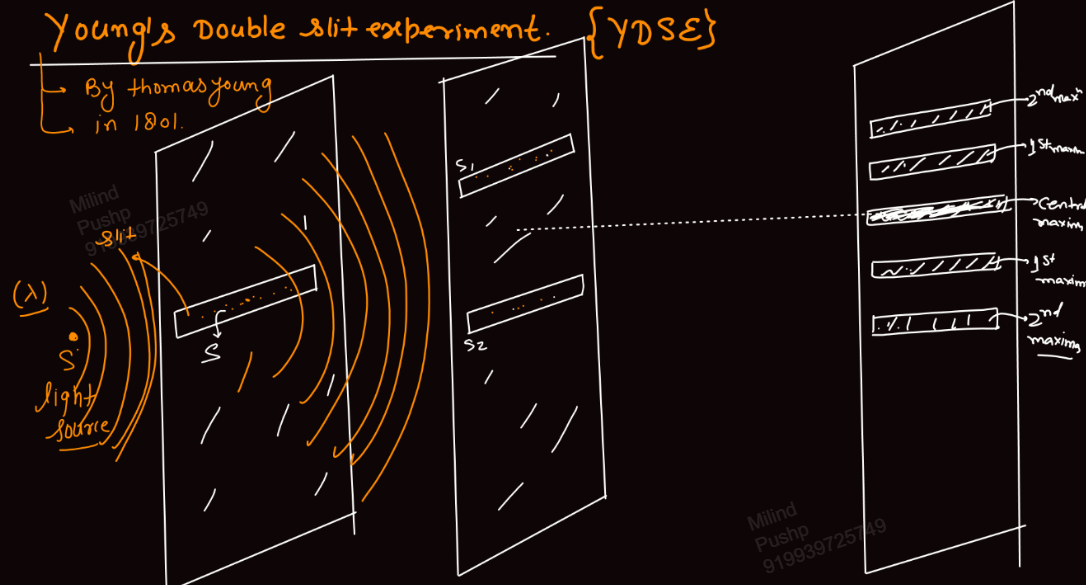 Young's Double slit experiment. {YDSE}
By thomas young
in 1801.
Milind
Pushp
919939725749
slit
(λ)
S
light
source
S
S1
S2
2nd maxm
1st maxm
Central
maxima
1st
maxima
2nd
maxima
Milind
Pushp
919939725749